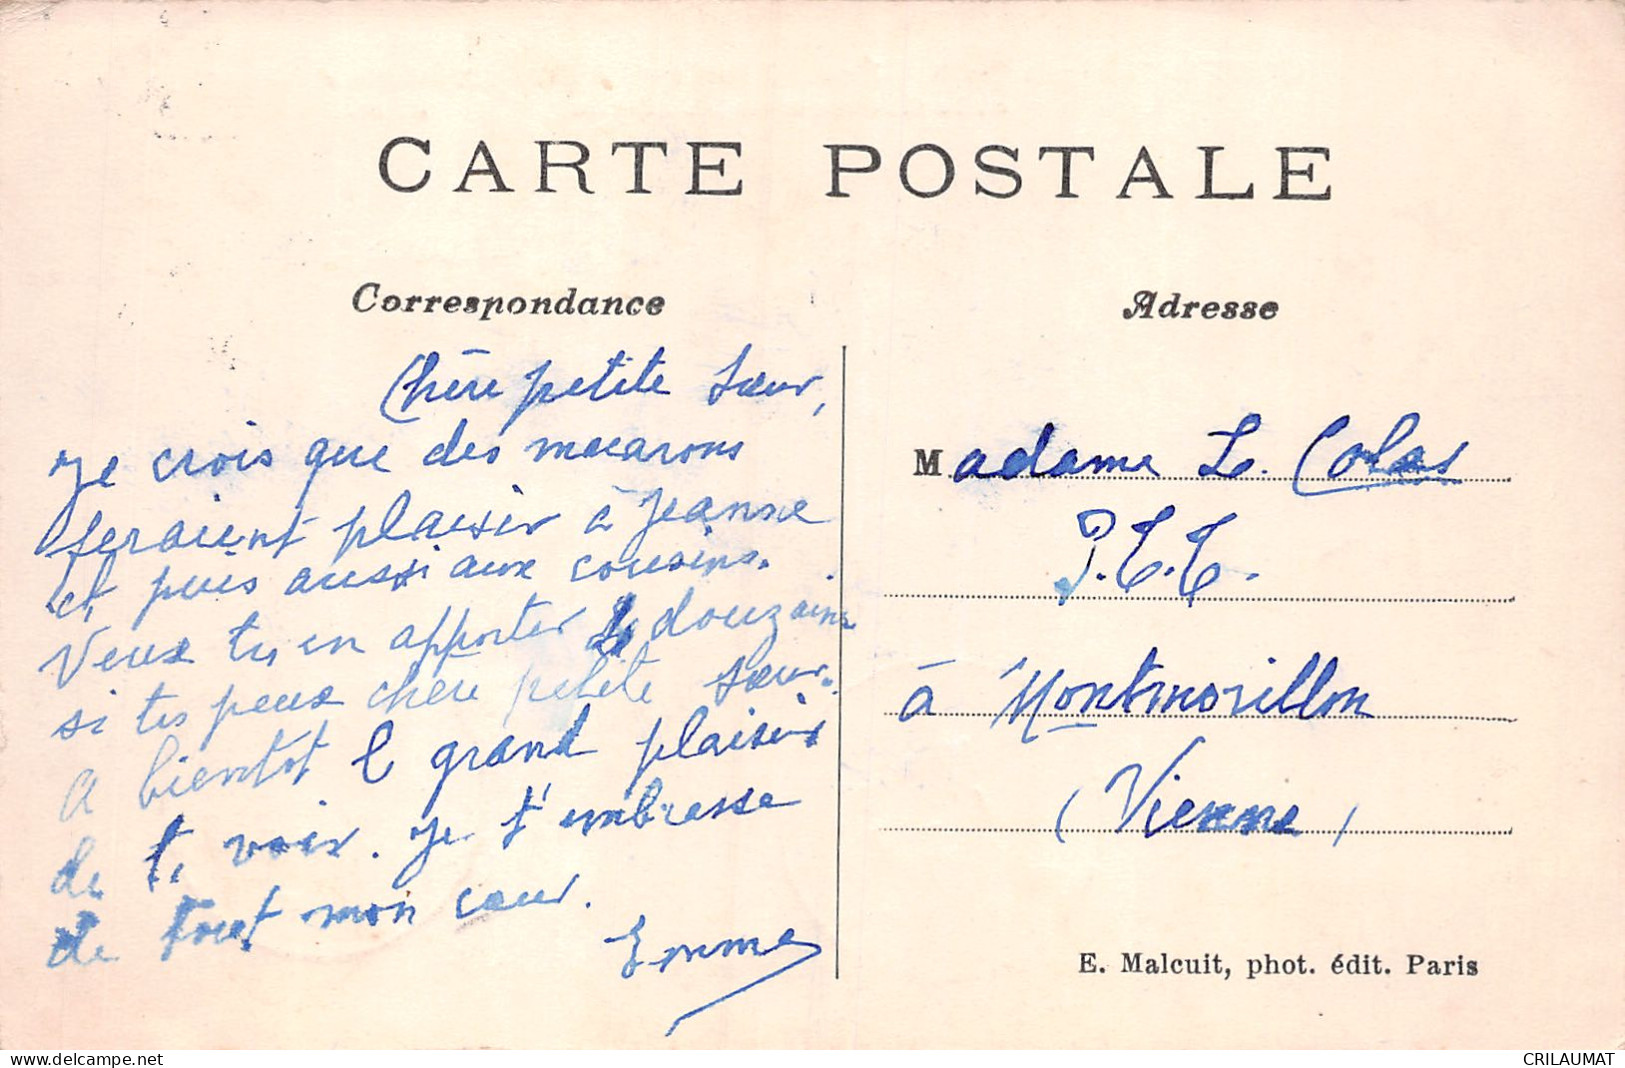 CARTE POSTALE
Correspondance
Chère petite Sœur,
Je crois que des macarons
feraient plaisir à Jeanne
et puis aussi aux cousins.
Veux tu en apporter 2 douzaine
si tu peux chère petite Sœur.
A bientot le grand plaisir
de te voir. Je t'embrasse
de tout mon cœur.
Emma
Adresse
Madame Le Colas
P.T.T.
à Montmorillon
(Vienne)
E. Malcuit, phot. édit. Paris
www.delcampe.net
CRILAUMAT